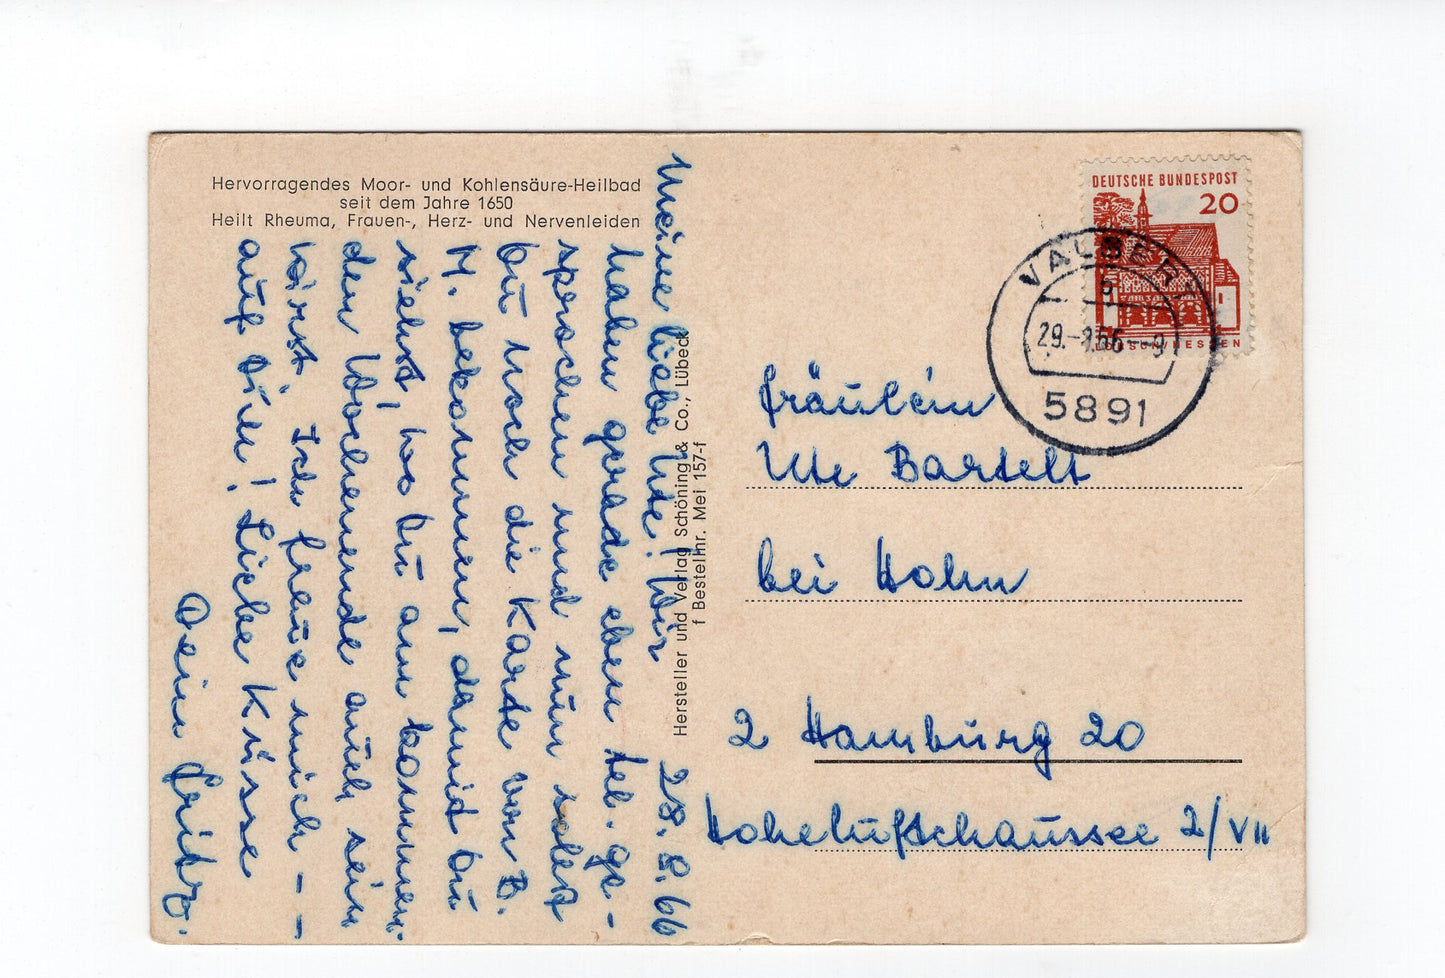 Hervorragendes Moor- und Kohlensäure-Heilbad
seit dem Jahre 1650
Heilt Rheuma, Frauen-, Herz- und Nervenleiden
28.8.66
Meine liebe Ute! Wir
haben gerade eben tel. ge-
sprochen und nun sollst
Du noch die Karte von B.
M. bekommen, damit Du
siehst, wo Du am kommen-
den Wochenende auch sein
wirst. Ich freue mich - -
auf Dich! Liebe Küsse
Dein Fritz.
Hersteller und Verlag Schöning & Co., Lübeck
f Bestellnr. Mei 157-f
DEUTSCHE BUNDESPOST
20
VALBERT
29.-8.66--9
5891
Fräulein
Ute Bartelt
bei Hohn
2 Hamburg 20
Hoheluftchaussee 2/VII